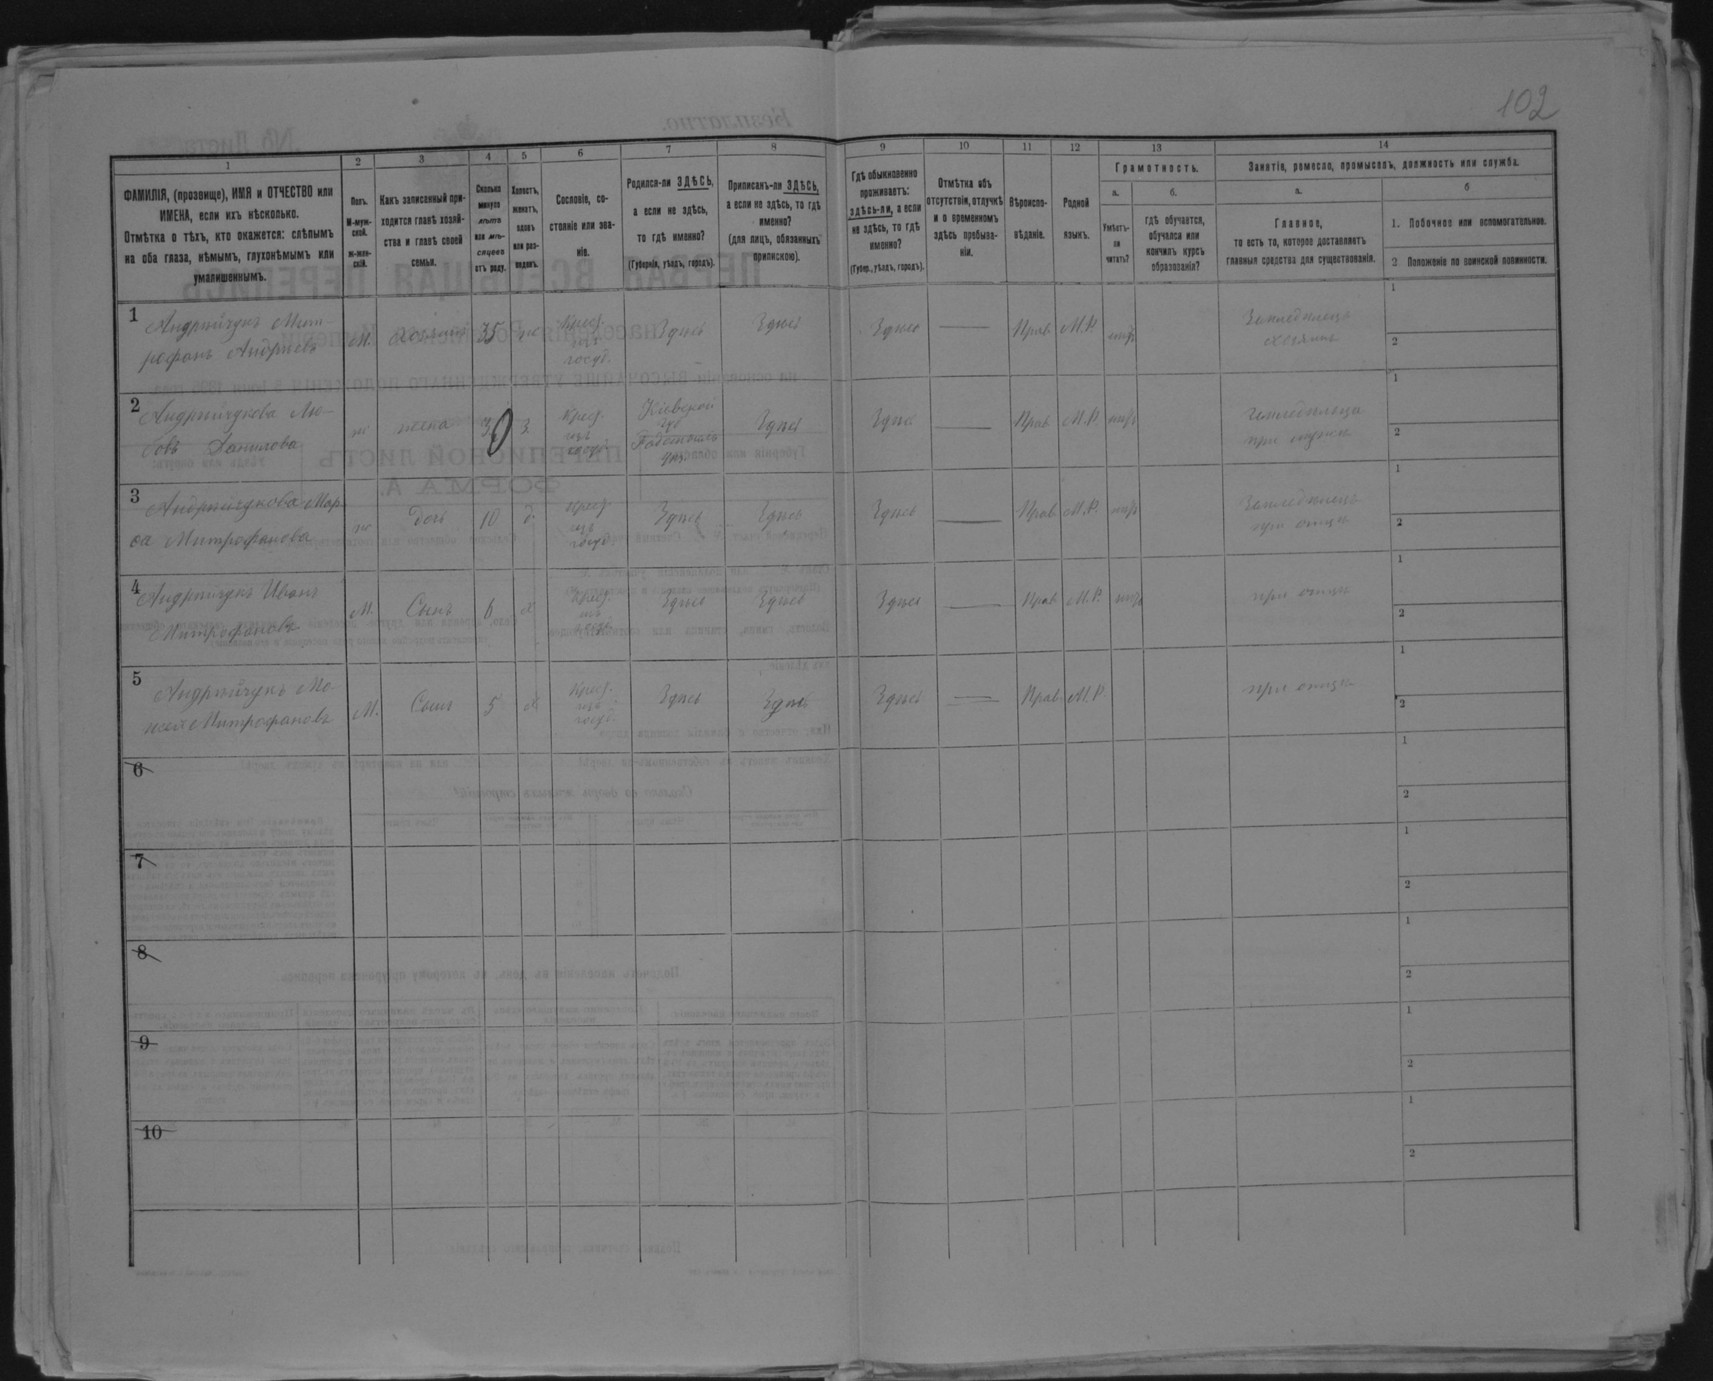 102
1
2
3
4
5
6
7
8
9
10
11
12
13
14
ФАМИЛІЯ, (прозвище), ИМЯ и ОТЧЕСТВО или
ИМЕНА, если ихъ нѣсколько.
Отмѣтка о тѣхъ, кто окажется: слѣпымъ
на оба глаза, нѣмымъ, глухонѣмымъ или
умалишеннымъ.
Полъ.
М-муж-
ской.
ж-жен-
скій.
Какъ записанный при-
ходится главѣ хозяй-
ства и главѣ своей
семьи.
Сколько
минуло
лѣтъ
или мѣ-
сяцевъ
отъ роду.
Холостъ,
женатъ,
вдовъ
или раз-
веденъ.
Сословіе, со-
стояніе или зва-
ніе.
Родился-ли ЗДѢСЬ,
а если не здѣсь,
то гдѣ именно?
(Губернія, уѣздъ, городъ).
Приписанъ-ли ЗДѢСЬ,
а если не здѣсь, то гдѣ
именно?
(для лицъ, обязанныхъ
припискою).
Гдѣ обыкновенно
проживаетъ:
здѣсь-ли, а если
не здѣсь, то гдѣ
именно?
(Губер., уѣздъ, городъ).
Отмѣтка объ
отсутствіи, отлучкѣ
и о временномъ
здѣсь пребыва-
ніи.
Вѣроиспо-
вѣданіе.
Родной
языкъ.
Грамотность.
а.
Умѣетъ-
ли
читать?
б.
гдѣ обучается,
обучался или
кончилъ курсъ
образованія?
Занятіе, ремесло, промыселъ, должность или служба.
а.
Главное,
то есть то, которое доставляетъ
главныя средства для существованія.
б
1. Побочное или вспомогательное.
2 Положеніе по воинской повинности.
1
Андрійчукъ Мит-
рофанъ Андреевъ
М.
хозяинъ
35
ж
Крест.
изъ
госуд.
Здѣсь
Здѣсь
Здѣсь
Прав.
М.Р.
нѣтъ
Земледѣлецъ
хозяинъ
1
2
2
Андрійчукова Лю-
бовь Данилова
ж
жена
30
з.
Крест.
изъ
госуд.
Кіевской
губ
уѣз.
Здѣсь
Здѣсь
Прав.
М.Р.
нѣтъ
при мужѣ
1
2
3
Андрійчукова Мар-
ѳа Митрофанова
ж
дочь
10
д.
Крест.
изъ
госуд.
Здѣсь
Здѣсь
Здѣсь
Прав.
М.Р.
нѣтъ
Земледѣлецъ
при отцѣ
1
2
4
Андрійчукъ Иванъ
Митрофановъ
М.
Сынъ
6
х
Крест.
изъ
госуд.
Здѣсь
Здѣсь
Здѣсь
Прав.
М.Р.
нѣтъ
при отцѣ
1
2
5
Андрійчукъ Мо-
исей Митрофановъ
М.
Сынъ
5
х
Крест.
изъ
госуд.
Здѣсь
Здѣсь
Здѣсь
Прав.
М.Р.
при отцѣ
1
2
6
1
2
7
1
2
8
1
2
9
1
2
10
1
2